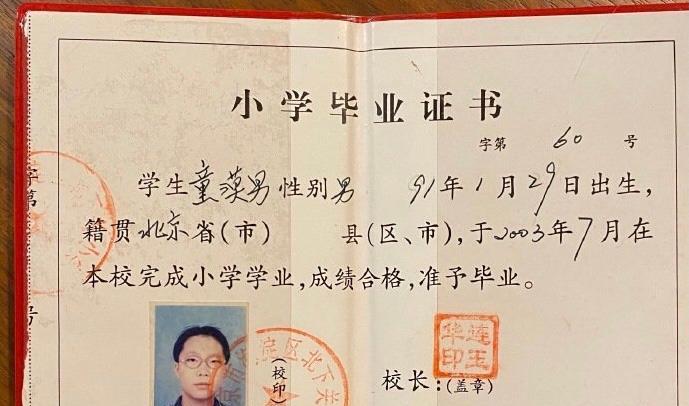 小学毕业证书
字第 60 号
学生童漠男性别男 91年1月29日出生，
籍贯北京省(市) 县(区、市)，于2003年7月在
本校完成小学学业，成绩合格，准予毕业。
字第
号
淀区北下关
(校印)
连玉华印
校长：(盖章)